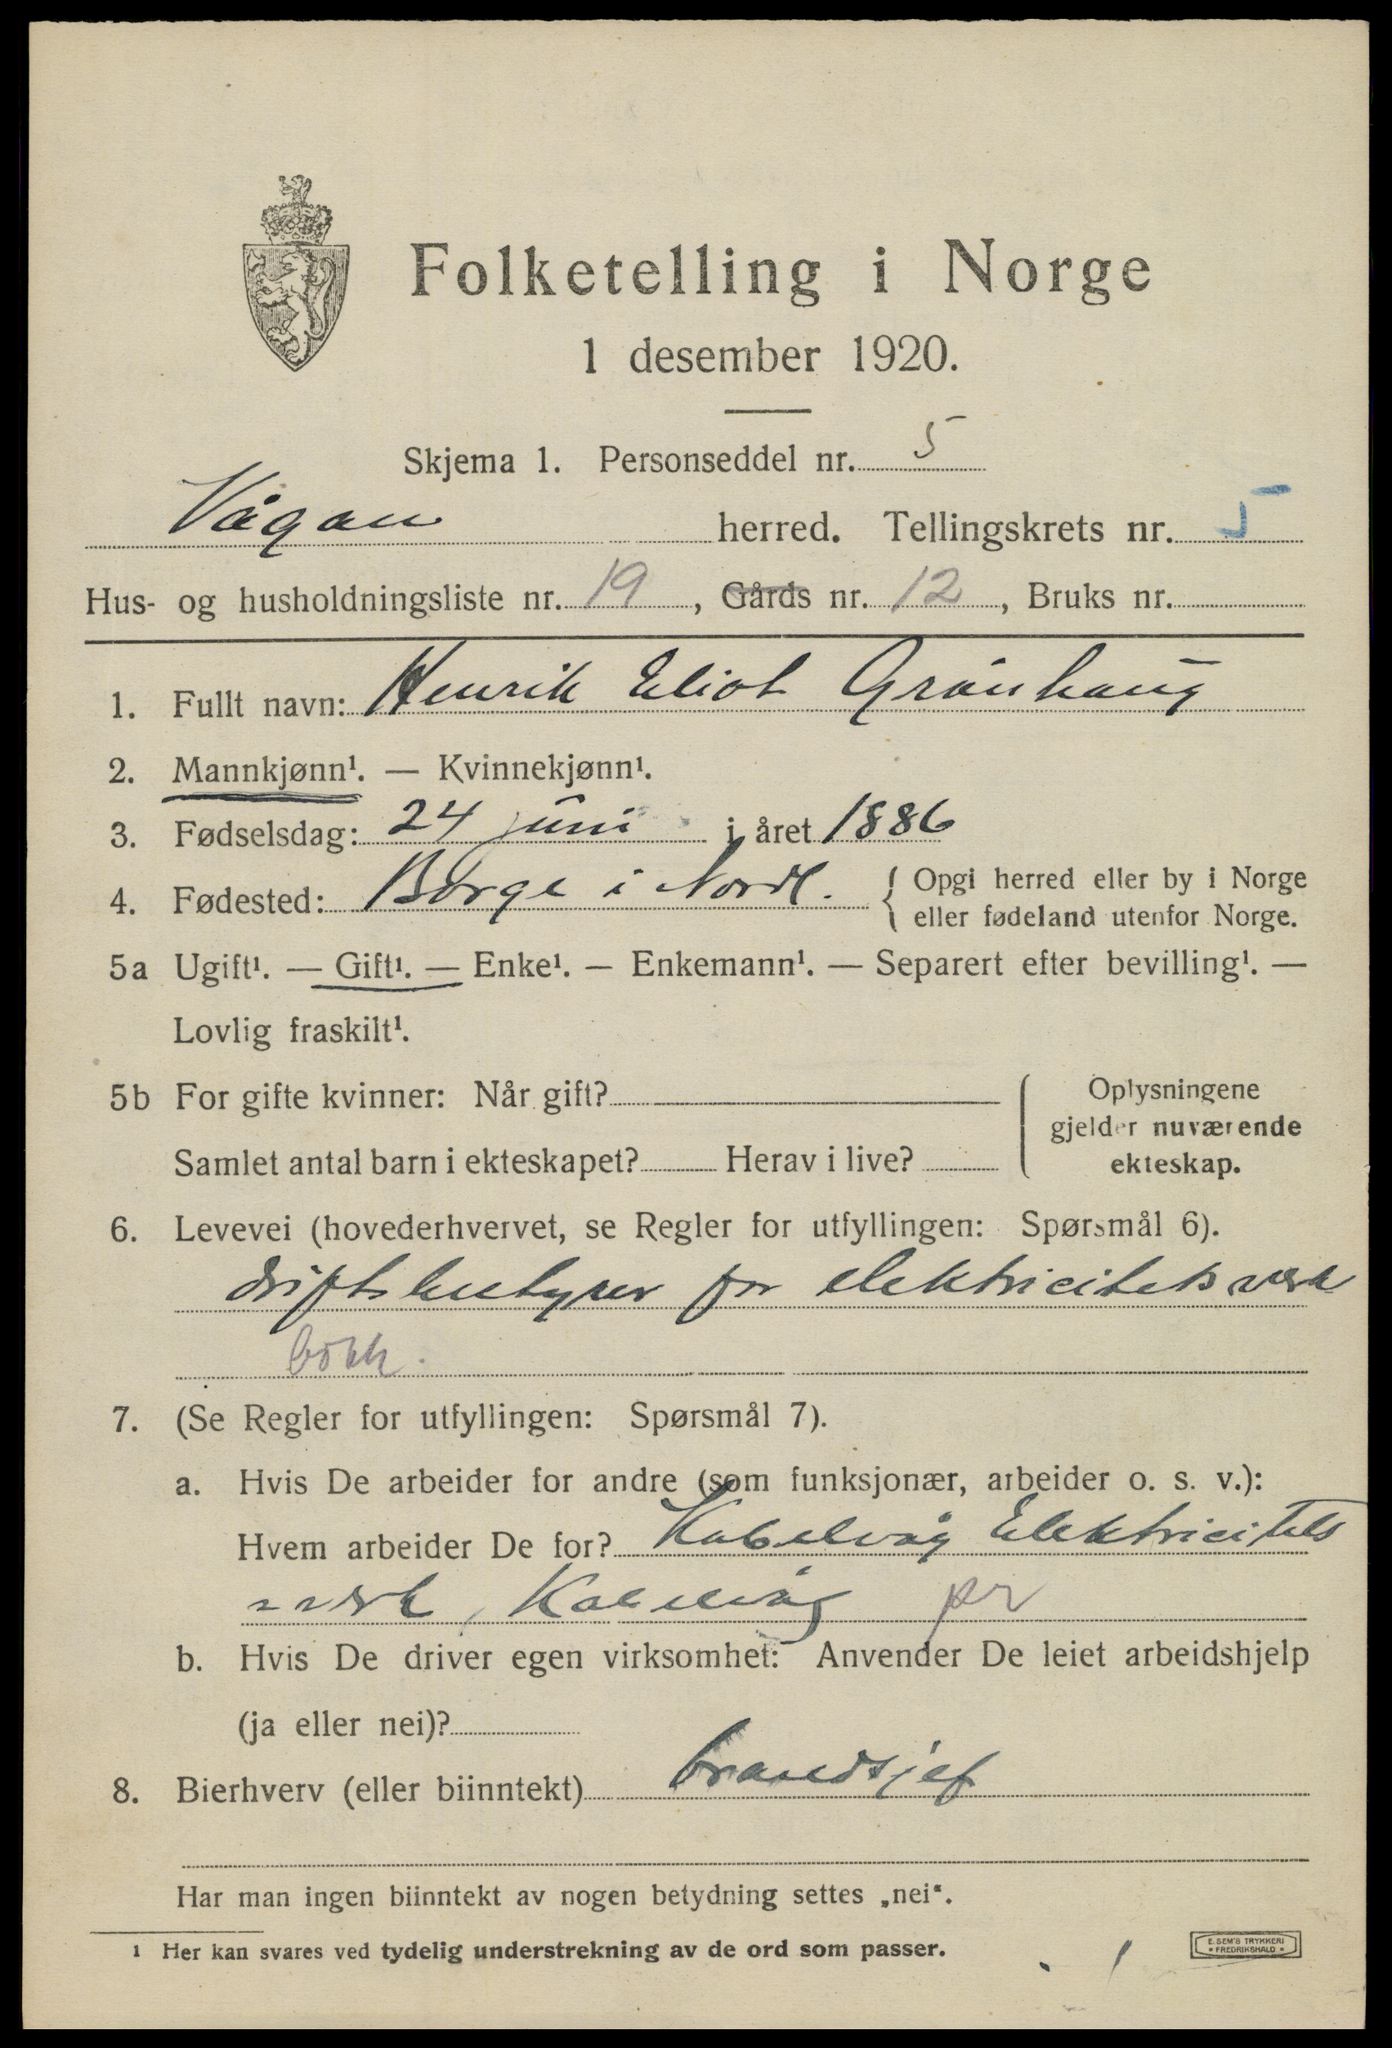 Folketelling i Norge
1 desember 1920.
Skjema 1. Personseddel nr. 5
Vågan herred. Tellingskrets nr. 5
Hus- og husholdningsliste nr. 19, Gårds nr. 12, Bruks nr.
1. Fullt navn: Henrik Eliot Grønhaug
2. Mannkjønn¹. — Kvinnekjønn¹.
3. Fødselsdag: 24 juni i året 1886
4. Fødested: Borge i Nordl. { Opgi herred eller by i Norge
eller fødeland utenfor Norge.
5a Ugift¹. — Gift¹. — Enke¹. — Enkemann¹. — Separert efter bevilling¹. —
Lovlig fraskilt¹.
5b For gifte kvinner: Når gift?
Samlet antal barn i ekteskapet? Herav i live?
Oplysningene
gjelder nuværende
ekteskap.
6. Levevei (hovederhvervet, se Regler for utfyllingen: Spørsmål 6).
driftsbestyrer for elektricitetsverk
7. (Se Regler for utfyllingen: Spørsmål 7).
a. Hvis De arbeider for andre (som funksjonær, arbeider o. s. v.):
Hvem arbeider De for? Kabelvåg Elektricitets
verk, Kabelvåg pr
b. Hvis De driver egen virksomhet: Anvender De leiet arbeidshjelp
(ja eller nei)?
8. Bierhverv (eller biinntekt) brandsjef
Har man ingen biinntekt av nogen betydning settes „nei“.
1 Her kan svares ved tydelig understrekning av de ord som passer.
E. SEM'S TRYKKERI
FREDRIKSHALD